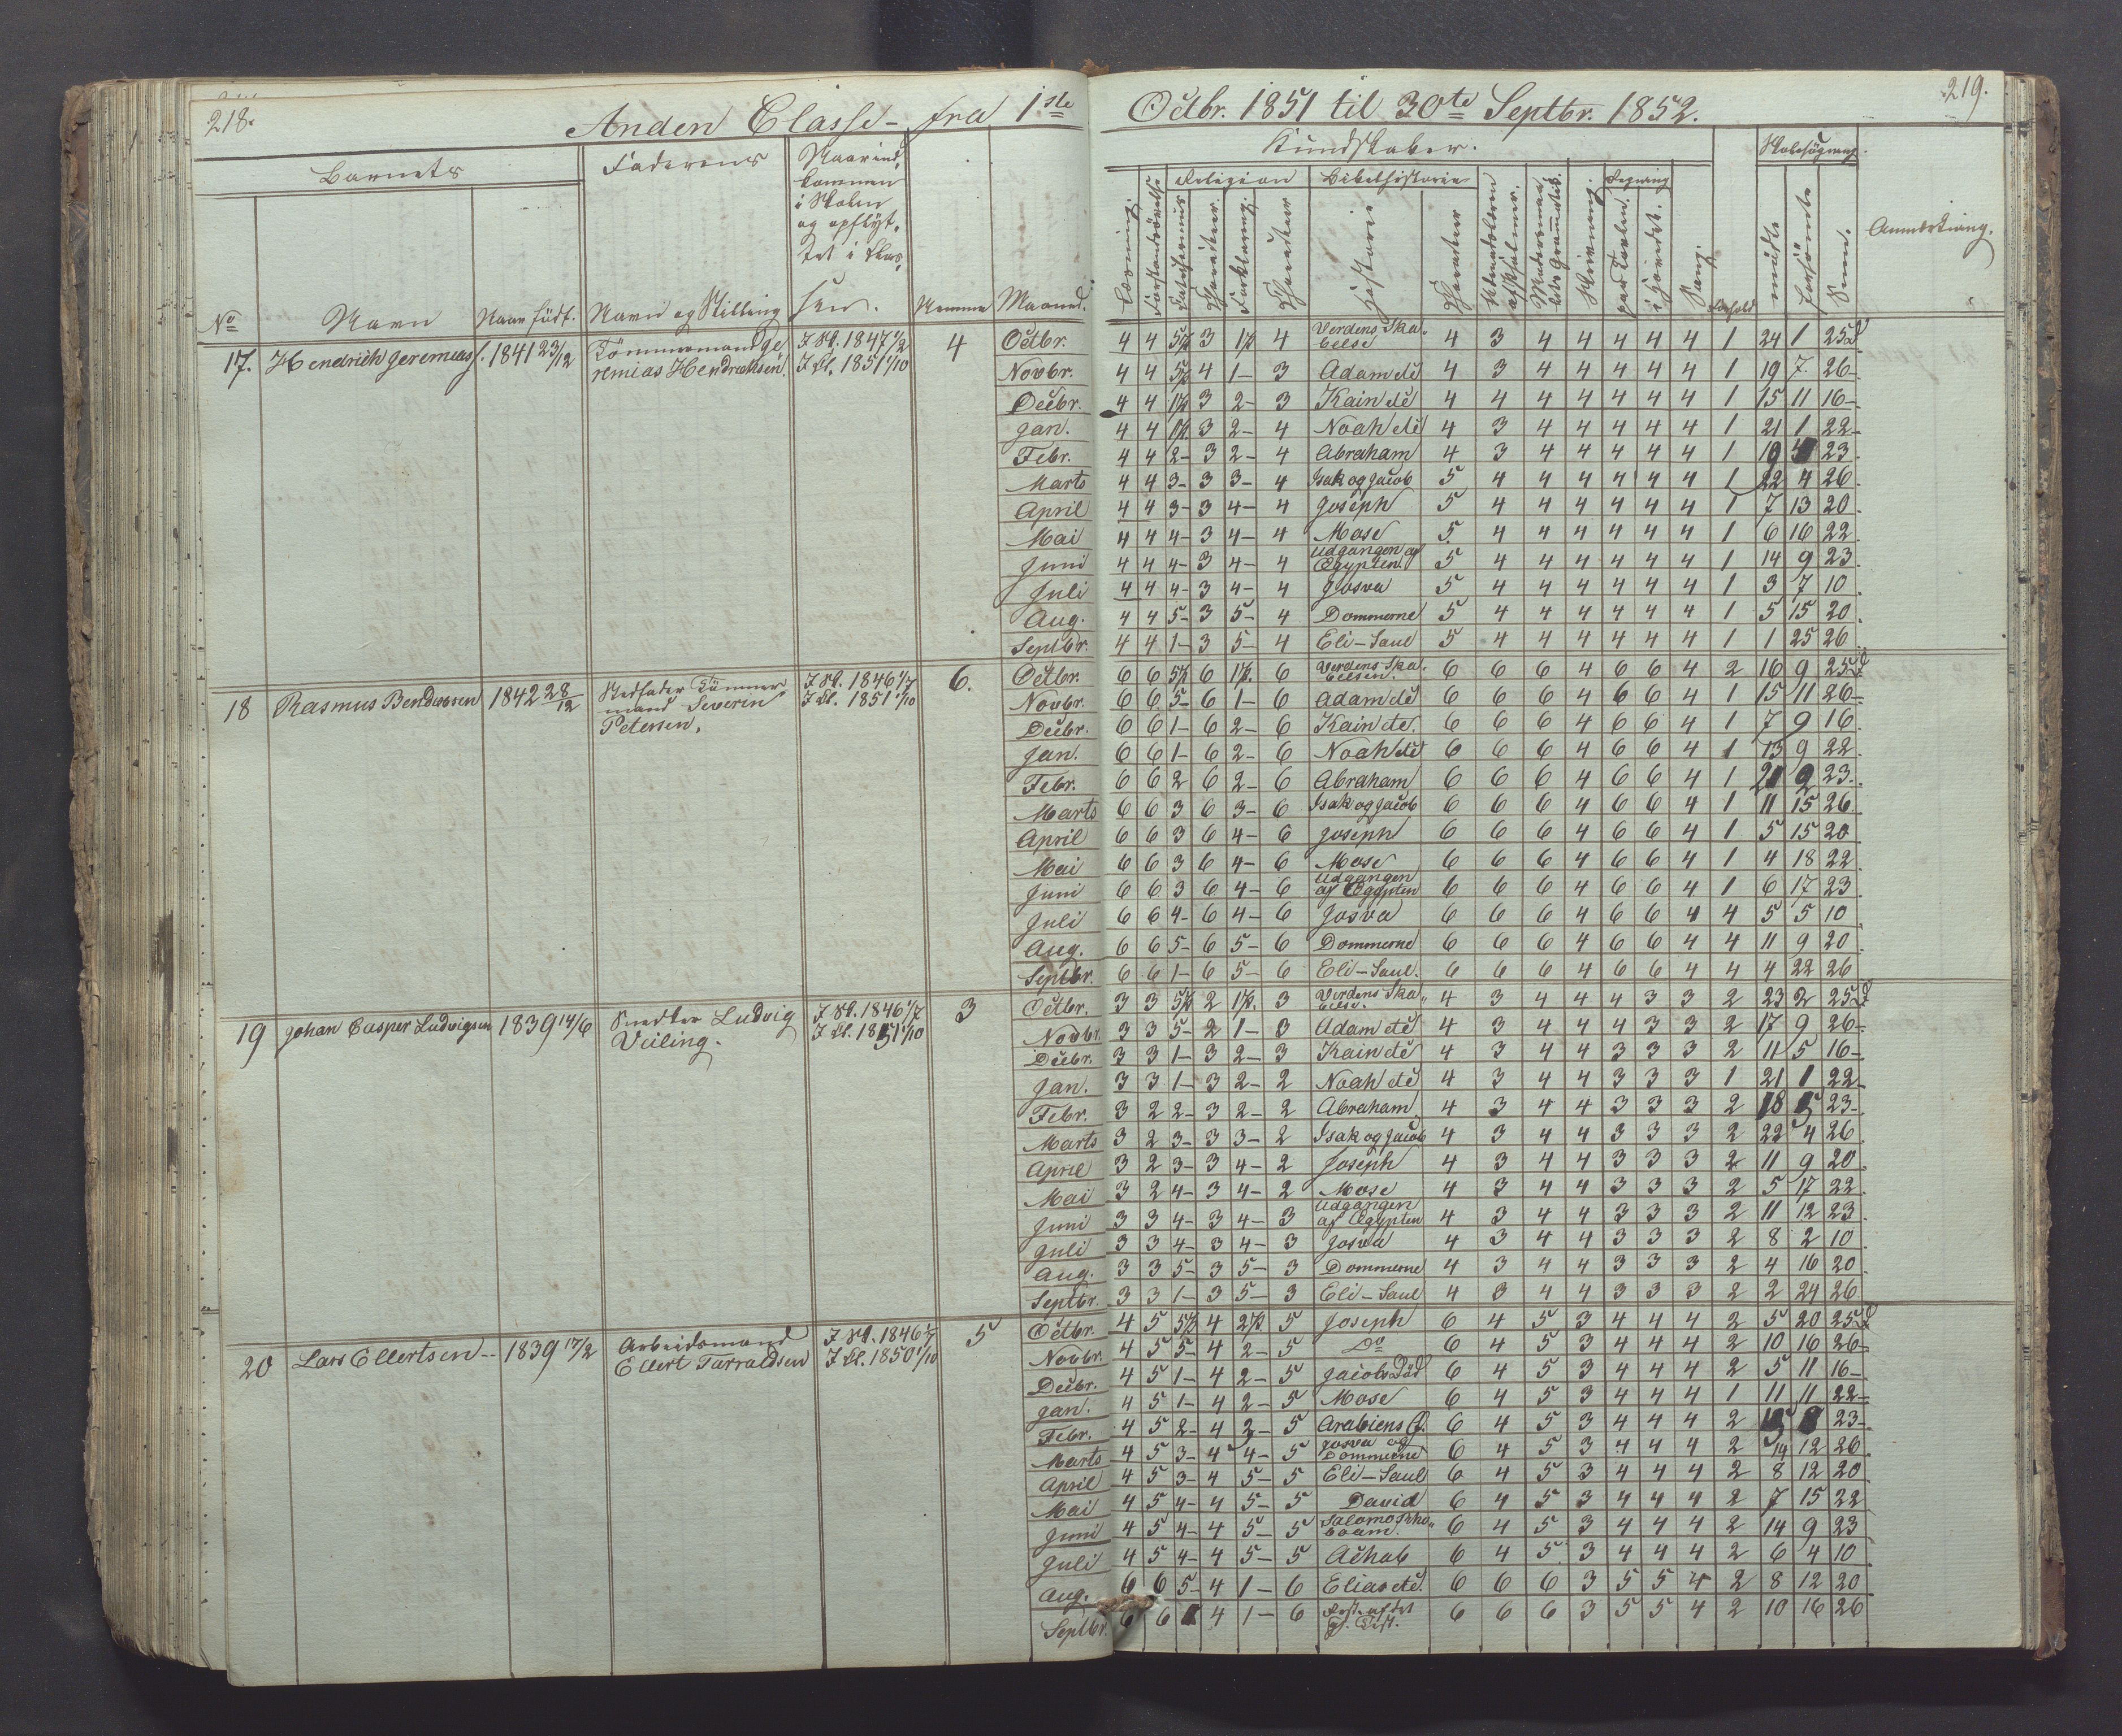 218.
Anden Classe – fra 1ste
Octbr. 1851 til 30te Septbr. 1852.
219.
Barnets
Faderens
Naar ind
kommen
i Skolen
og opflyt
tet i Klas
sen.
No
Navn
Naar født.
Navn og Stilling
Numer
Maaned.
Kundskaber.
Religion
Bibelhistorie
Regning
Skolesøgning
Læsning.
Forstandsøvelse
Catechismus
Charakter.
Forklaring.
Charakter
Historie
Charakter
Skrivning.
paa Tavlen.
i Hovedet.
Sang.
Forhold
mødte
forsømte
Sum.
Anmærkning.
17. Hendrich Jeremias s. 1841 23/12 Tömmermand Je
remias Hendrichsen. I Sk. 1847 1/2
I Kl. 1851 1/10 4
Octbr. 4 4 5 1/2 3 1 1/2 4 Verdens Ska„
belse 4 3 4 4 4 4 4 1 24 1 25 D
Novbr. 4 4 5 1/2 4 1– 3 Adam etc 4 3 4 4 4 4 4 1 19 7 26–
Decbr. 4 4 1 1/2 3 2– 3 Kain etc 4 4 4 4 4 4 4 1 15 11 16–
Jan. 4 4 1 1/2 3 2– 4 Noah etc 4 3 4 4 4 4 4 1 21 1 22–
Febr. 4 4 2– 3 2– 4 Abraham 4 3 4 4 4 4 4 1 19 4 23
Marts 4 4 3– 3 3– 4 Isak og Jacob 5 4 4 4 4 4 4 1 22 4 26
April 4 4 3– 3 4– 4 Joseph 5 4 4 4 4 4 4 1 7 13 20
Mai 4 4 4– 3 4– 4 Mose 5 4 4 4 4 4 4 1 6 16 22
Juni 4 4 4– 3 4– 4 Udgangen af
Egypten. 5 4 4 4 4 4 4 1 14 9 23
Juli 4 4 4– 3 4– 4 Josva 5 4 4 4 4 4 4 1 3 7 10
Aug. 4 4 5– 3 5– 4 Dommerne 5 4 4 4 4 4 4 1 5 15 20
Septbr. 4 4 1– 3 5– 4 Eli – Saul 5 4 4 4 4 4 4 1 1 25 26
18 Rasmus Bendixsen 1842 28/12 Stedfader Tömmer
mand Severin
Petersen. I Sk. 1846 1/7
I Kl. 1851 1/10 6.
Octbr. 6 6 5 1/2 6 1 1/2. 6 Verdens Ska„
belsen. 6 6 6 4 6 6 4 2 16 9 25 D
Novbr. 6 6 5– 6 1– 6 Adam etc 6 6 6 4 6 6 4 1 15 11 26–
Decbr. 6 6 1– 6 2– 6 Kain etc. 6 6 6 4 6 6 4 1 7 9 16
Jan. 6 6 1– 6 2– 6 Noah etc 6 6 6 4 6 6 4 1 13 9 22
Febr. 6 6 2 6 2– 6 Abraham 6 6 6 4 6 6 4 1 21 2 23.
Marts 6 6 3 6 3– 6 Isak og Jacob 6 6 6 4 6 6 4 1 11 15 26
April 6 6 3 6 4– 6 Joseph 6 6 6 4 6 6 4 1 5 15 20
Mai 6 6 3 6 4– 6 Mose 6 6 6 4 6 6 4 1 4 18 22
Juni 6 6 3 6 4– 6 Udgangen
af Egypten 6 6 6 4 6 6 4 1 6 17 23
Juli 6 6 4– 6 4– 6 Josva 6 6 6 4 6 6 4 4 5 5 10
Aug. 6 6 5– 6 5– 6 Dommerne 6 6 6 4 6 6 4 4 11 9 20
Septbr. 6 6 1– 6 5– 6 Eli – Saul. 6 6 6 4 6 6 4 4 4 22 26
19 Johan Casper Ludvigsen 1839 14/6 Snedker Ludvig
I Sk. 1846 1/7
I Kl. 1851 1/10 3
Octbr. 3 3 5 1/2 2 1 1/2. 3 Verdens Ska„
belse. 4 3 4 4 4 3 3 2 23 2 25 D
Novbr. 3 3 5– 2 1– 3 Adam etc 4 3 4 4 4 3 3 2 17 9 26–
Decbr. 3 3 1– 3 2– 3 Kain etc 4 3 4 4 3 3 3 2 11 5 16–
Jan. 3 3 1– 3 2– 2 Noah etc 4 3 4 4 3 3 3 1 21 1 22
Febr. 3 2 2– 3 2– 2 Abraham 4 3 4 4 3 3 3 2 18 5 23–
Marts 3 2 3– 3 3– 2 Isak og Jacob 4 3 4 4 3 3 3 2 22 4 26
April 3 2 3– 3 4– 2 Joseph 4 3 4 4 3 3 3 2 11 9 20
Mai 3 2 4– 3 4– 2 Mose 4 3 4 4 3 3 3 2 5 17 22
Juni 3 3 4– 3 4– 3 Udgangen
af Egypten 4 3 4 4 3 3 3 2 11 12 23
Juli 3 3 4– 3 4– 3 Josva 4 3 4 4 3 3 3 2 8 2 10
Aug. 3 3 5– 3 5– 3 Dommerne 4 3 4 4 3 3 3 2 4 16 20
Septbr. 3 3 1– 3 5– 3 Eli – Saul 4 3 4 4 3 3 3 2 2 24 26
20 Lars Ellertsen – 1839 17/2 Arbeidsmand
Ellert Tarraldsen I Sk. 1846 1/7
I Kl. 1850 1/10 5
Octbr. 4 5 5 1/2 4 2 1/2. 5 Joseph 6 4 5 3 4 4 4 2 5 20 25 D
Novbr. 4 5 5– 4 2– 5 Do 6 4 5 3 4 4 4 2 10 16 26–
Decbr. 4 5 1– 4 2– 5 Jacobs Död 6 4 5 3 4 4 4 2 5 11 16–
Jan. 4 5 1– 4 2– 5 Mose 6 4 5 3 4 4 4 1 11 11 22–
Febr. 4 5 2– 4 2– 5 Arabiens Ö. 6 4 5 3 4 4 4 2 15 8 23–
Marts 4 5 3– 4 4– 5 Josva og
Dommerne 6 4 5 3 4 4 4 2 14 12 26
April 4 5 3– 4 5– 5 Eli – Saul 6 4 5 3 4 4 4 2 8 12 20
Mai 4 5 4– 4 5– 5 David 6 4 5 3 4 4 4 2 7 15 22
Juni 4 5 4– 4 5– 5 Salomo Rho„
boam. 6 4 5 3 4 4 4 2 14 9 23
Juli 4 5 4– 4 5– 5 Achab 6 4 5 3 4 4 4 2 6 4 10
Aug. 6 6 5– 4 1– 6 Elias etc. 6 6 6 3 5 5 4 2 8 12 20
Septbr. 6 6 1 4 1– 6 Rest. af det
gl. Test. 6 6 6 3 5 5 4 2 10 16 26